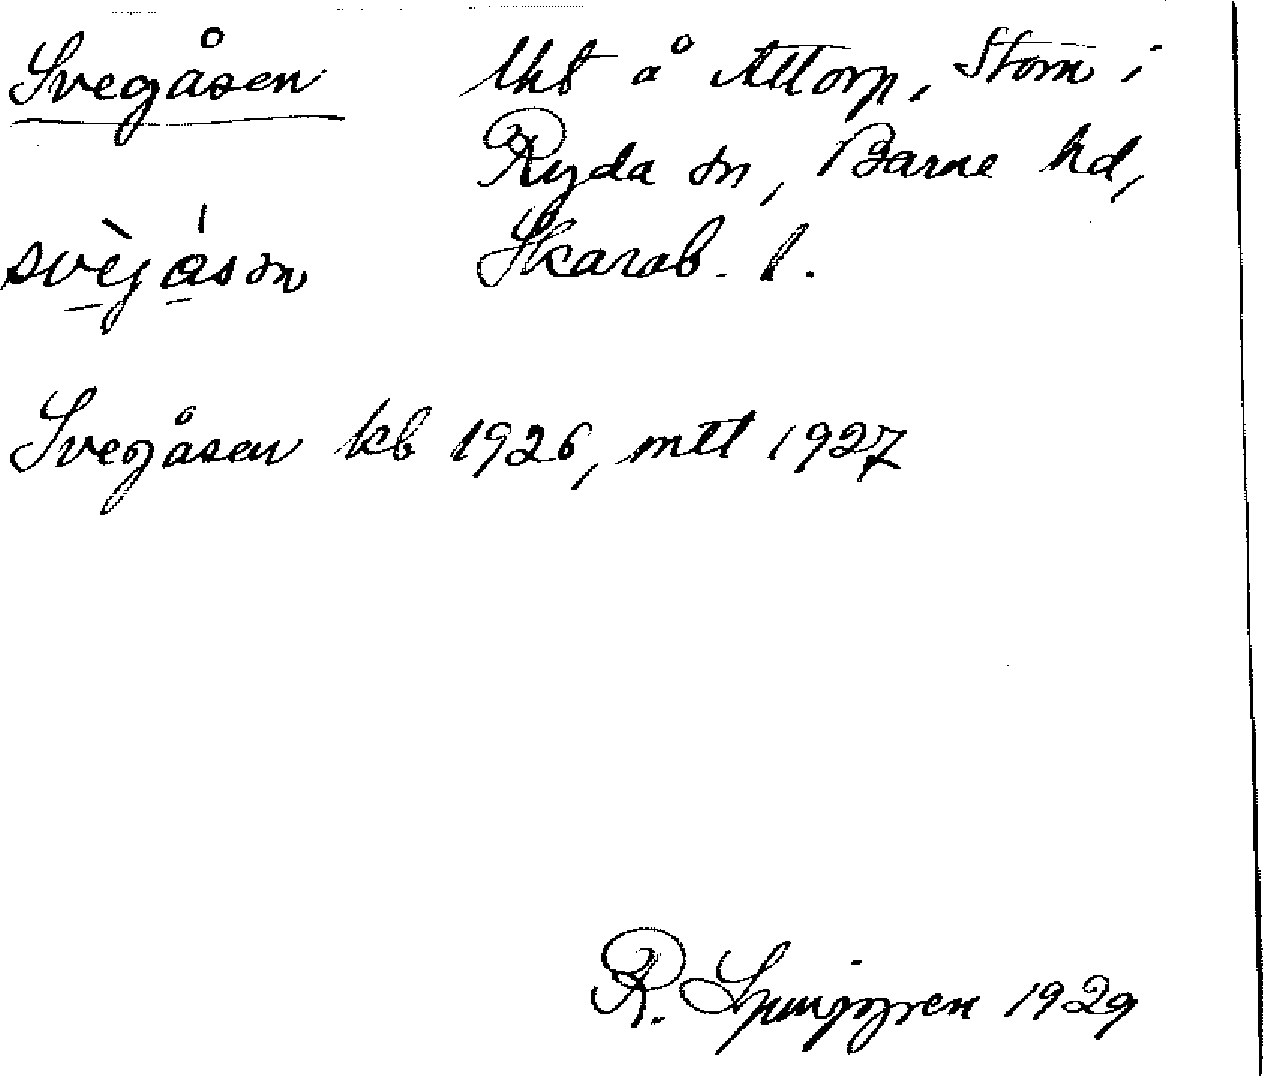 Svegåsen lht å Attorp, Stom i
Ryda sn, Barne hd,
svegåsen Skarab. l.
Svegåsen kb 1926, mtl 1927
R. Ljunggren 1929